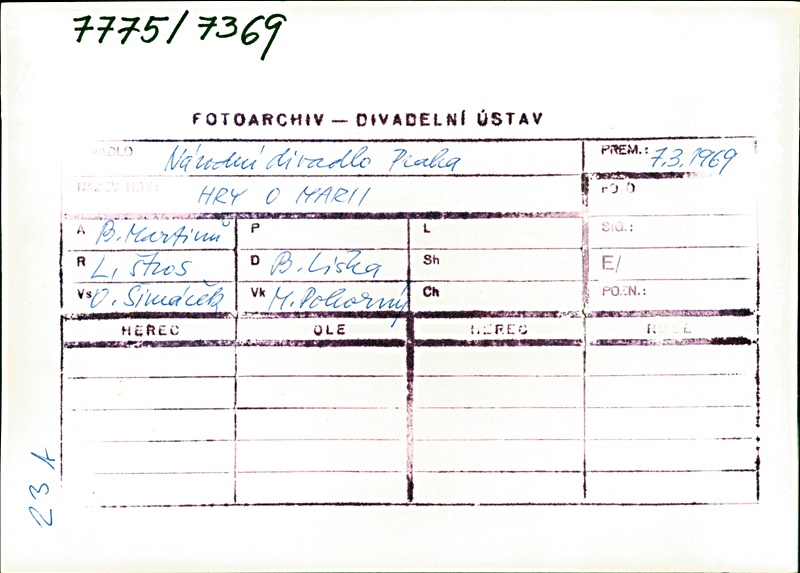 7775/7369
FOTOARCHIV — DIVADELNÍ ÚSTAV
ADLO Národní divadlo Praha PREM.: 7.3.1969
NÁZEV HRY: HRY O MARII FOTO
A B. Martinů P L SIG.:
R L. Štros D B. Liška Sh E/
Vs O. Šimáček Vk M. Pokorný Ch POZN.:
HEREC OLE HEREC ROLE
23 A